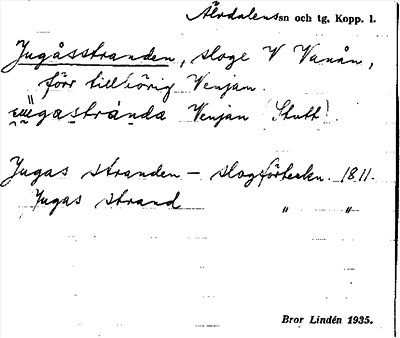 Älvdalens sn och tg, Kopp. l.
Jugåsstranden, sloge V Vanån,
förr tillhörig Venjan.
Venjan (Stutt).
Jugas stranden – slogförteckn. 1811.
Jugas strand " "
Bror Lindén 1935.